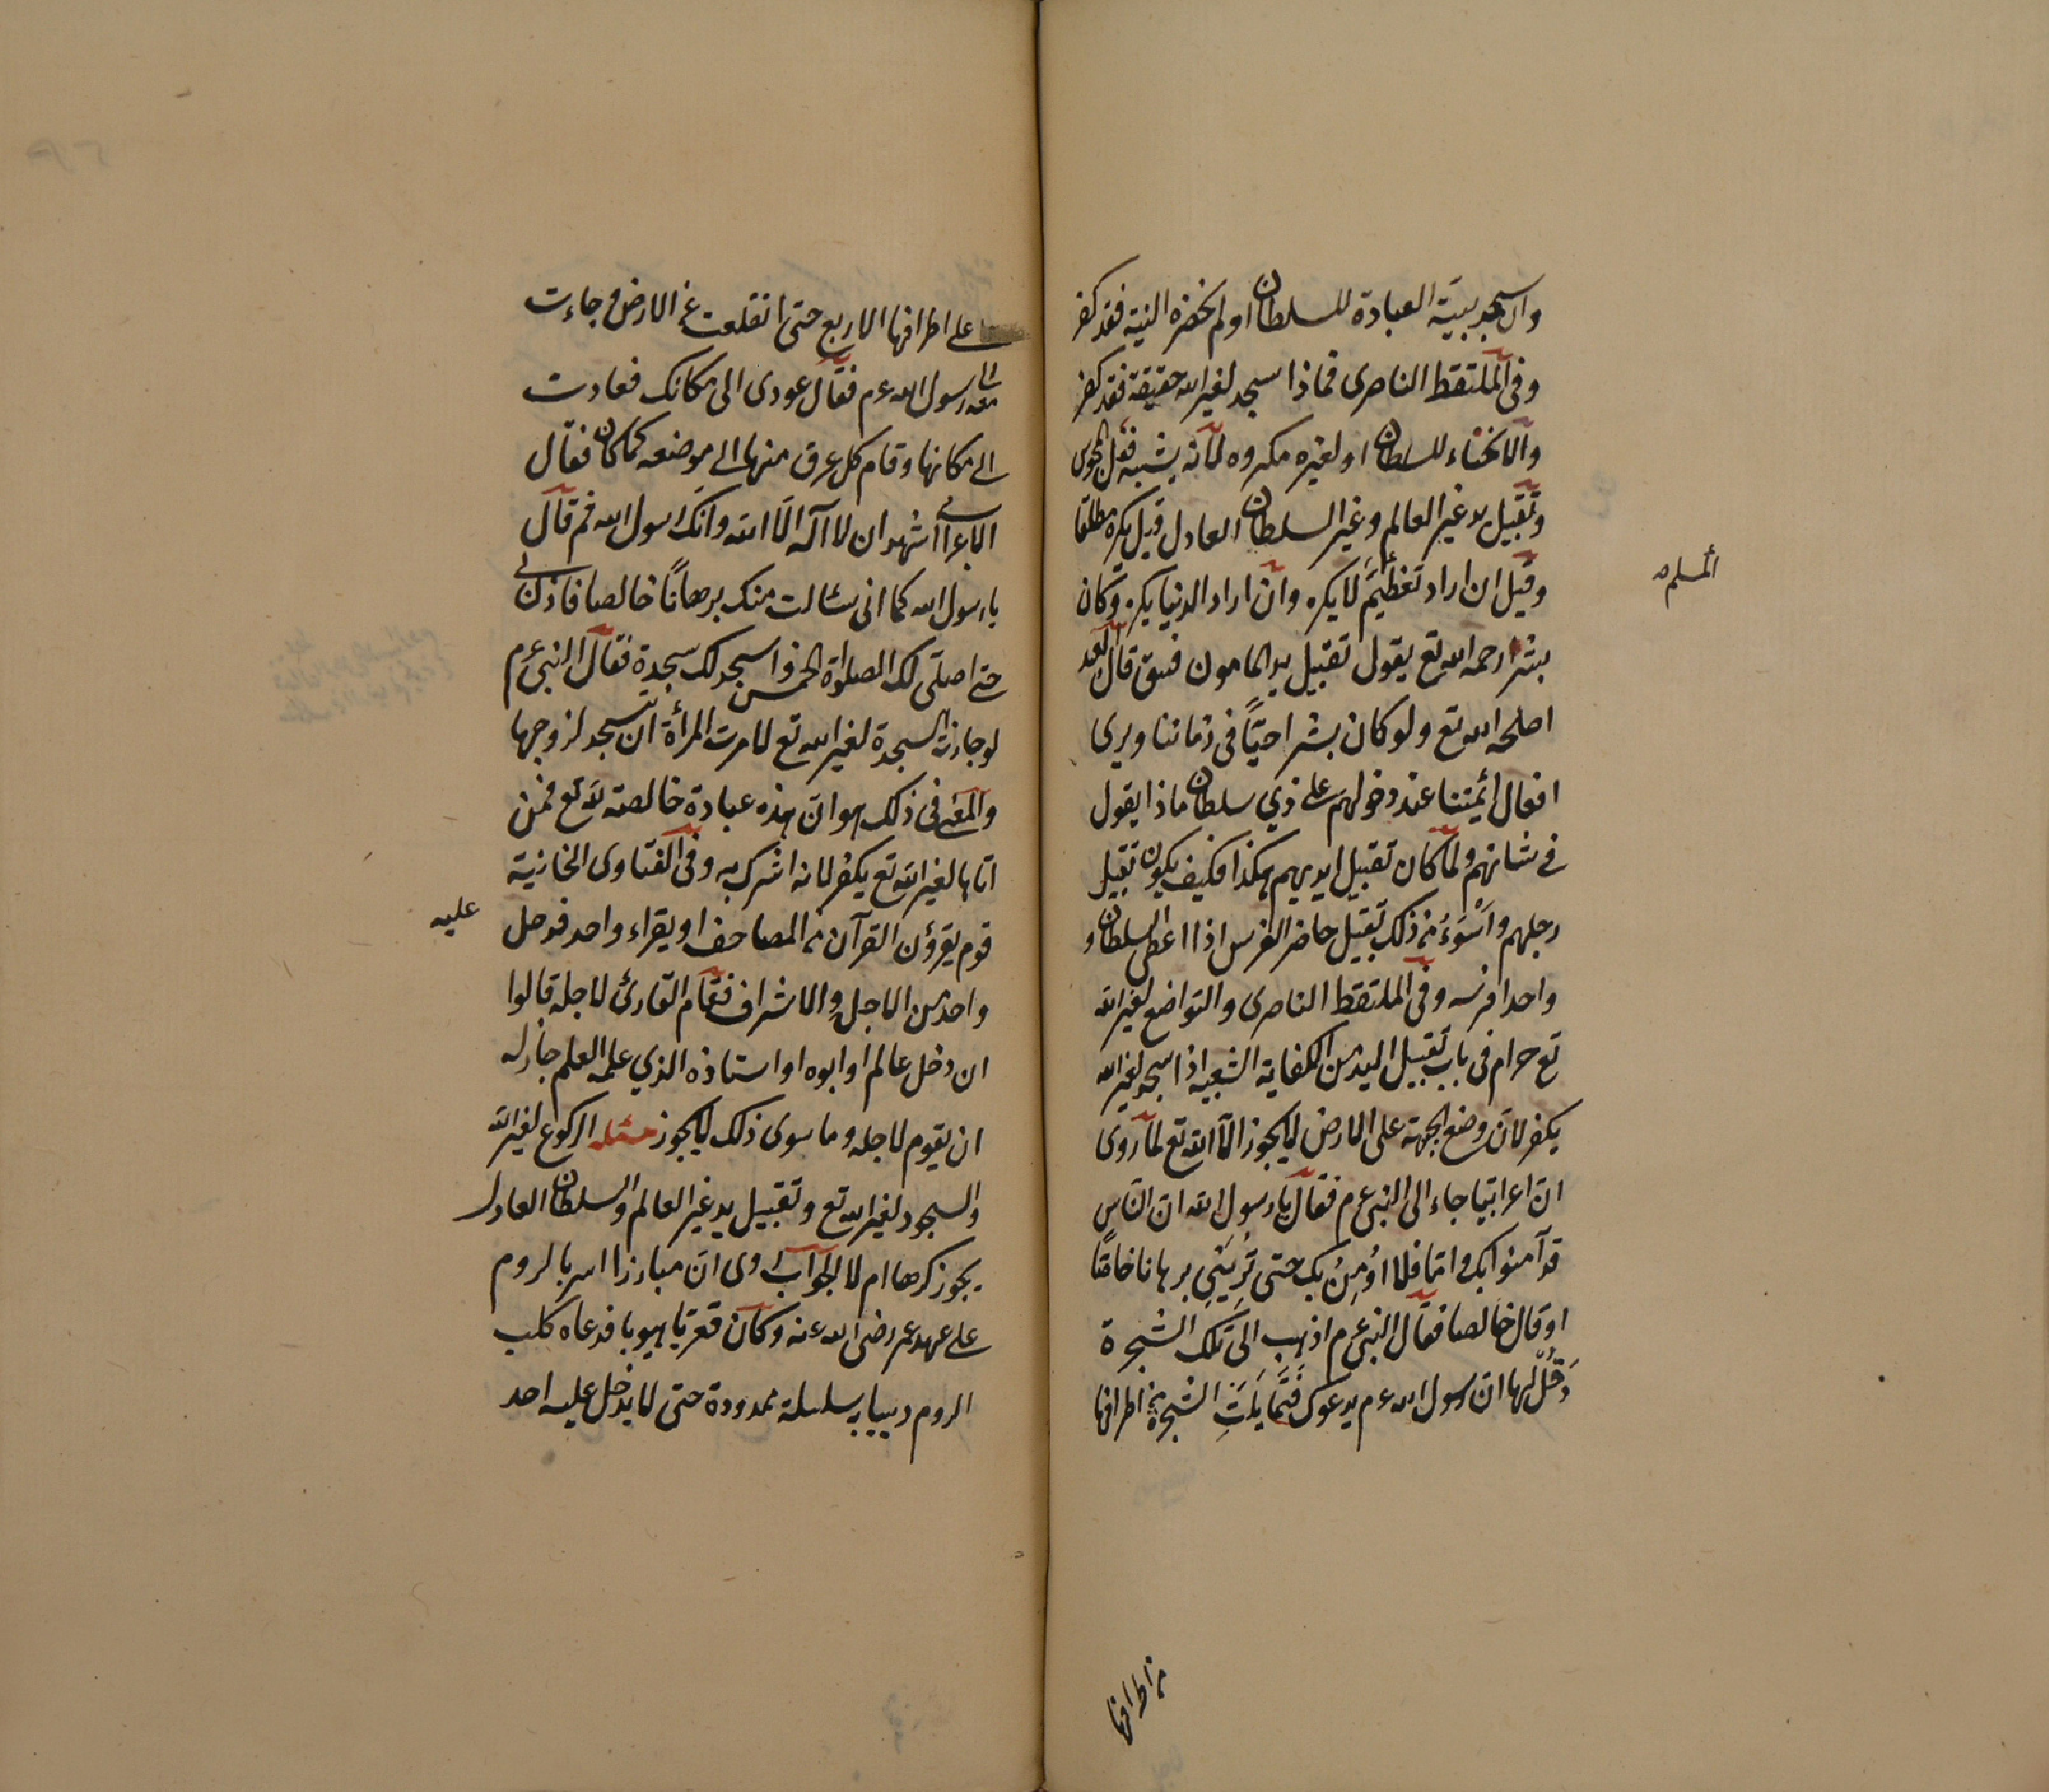 وان سجد بنية العبادة للسلطان او لم تحضره النية فقد كفر
وفى الملتقط الناصرى فماذا سجد لغير الله حقيقة فقد كفر
والانحناء للسلطان او لغيره مكروه لانه يشبه فعل المجوس
وتقبيل يد غير العالم وغير السلطان العادل قيل يكره مطلقا
وقيل ان اراد تعظيم لا يكره وان اراد الدنيا يكره وكان
المسلم
بشر رحمه الله تع يقول تقبيل يد المامون فسق قال العبد
اصلحه الله تع ولو كان بشر احيّاً فى زماننا ويرى
افعال ائمتنا عند دخولهم على ذي سلطان ماذا يقول
فى شانهم ولما كان تقبيل ايديهم هكذا فكيف يكون تقبيل
رجلهم واَسْوَءُ من ذلك تقبيل حاضر الفرس اذا اعطى السلطان و
واحدا فرسه وفى الملتقط الناصرى والتواضع لغير الله
تع حرام فى باب تقبيل اليد من الكفاية الشعبية اذا سجد لغير الله
يكفر لان وضع الجبهة على الارض لا يجوز الا الله تع لما روى
ان اعرابيا جاء الى النبى عم فقال يا رسول الله ان الناس
قد آمنوا بك وانا فلا اُومِنُ بك حتى تُرِيَنِي برهانا خاصّا
او قال خالصا فقال النبى عم اذهب الى تلك الشجرة
وَقُلْ لها ان رسول الله عم يدعوك فَتَمَايَلَتِ الشجرة من اطرافها
من اطرافها
على اطرافها الاربع حتى انقلعت عن الارض وجاءت
معه الى رسول الله عم فقال عودى الى مكانك فعادت
الى مكانها وقام كل عرق منها الى موضعه كما كان فقال
الاعرابى اشهد ان لا اله الا الله وانك رسول الله ثم قال
يا رسول الله كما انى سئالت منك برهاناً خالصا فاذن لى
حتى اصلى لك الصلواة الخمس واسجد لك سجدة فقال النبى عم
لو جازت السجدة لغير الله تع لامرت المرأة ان تسجد لزوجها
والمعنى فى ذلك هو ان هذه عبادة خالصة لله تع فمن
اتاها لغير الله تع يكفر لانه اشرك به وفى الفتاوى الخانية
قوم يقرؤن القرآن من المصاحف او يقراء واحد فدخل
عليه
واحد من الاجل والاشراف فقام القارئ لاجله قالوا
ان دخل عالم او ابوه او استاذه الذي علمه العلم جاز له
ان يقوم لاجله وما سوى ذلك لا يجوز مسئله الركوع لغير الله
والسجود لغير الله تع وتقبيل يد غير العالم والسلطان العادل
يجوز كرها ام لا الجواب روى ان مبارزا اسر بالروم
على عهد عمر رضى الله عنه وكان قويا هيوبا فدعاه كلب
الروم وببابه سلسلة ممدودة حتى لا يدخل عليه احد